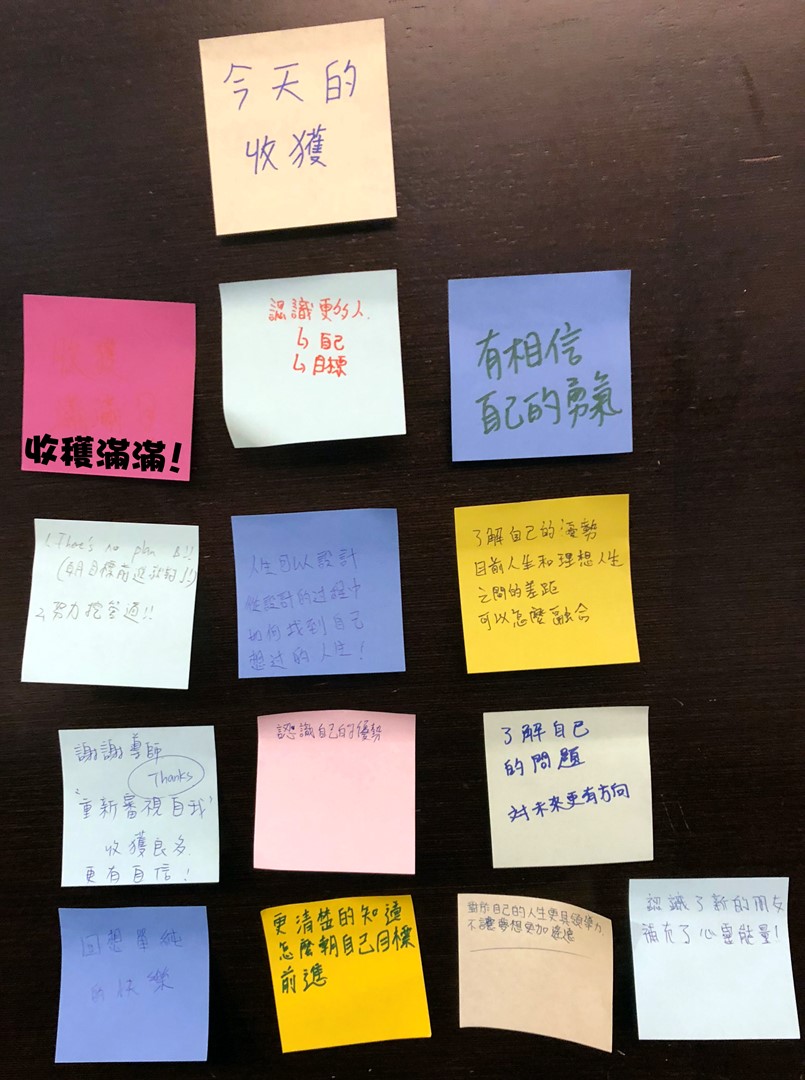 今天的
收獲
收穫滿滿!
認識更多的人.
↳ 自己
↳ 目標
有相信
自己的勇氣
1. There's no plan B!!
(朝目標前進就對了!!)
2. 努力挖管道!!
人生可以設計
從設計的过程中
如何找到自己
想过的人生!
了解自己的優勢
目前人生和理想人生
之間的差距
可以怎麼融合
謝謝導師
Thanks
"重新審視自我"
收獲良多.
更有自信!
認識自己的優勢
了解自己
的問題
對未來更有方向
回想單純
的快樂
更清楚的知道
怎麼朝自己目標
前進
對於自己的人生更具
不讓夢想更加遙遠
認識了新的朋友
補充了心靈能量!